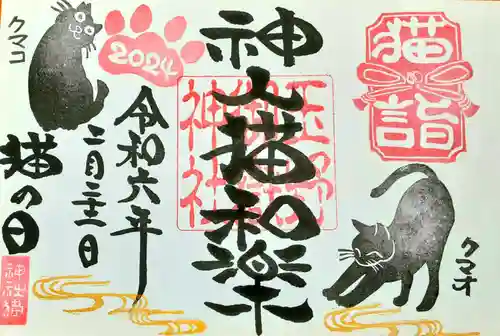 猫詣
クマオ
神人猫和楽
玉野
御嶽
神社
2024
令和六年
二月二十二日
クマコ
猫の日
神社猫